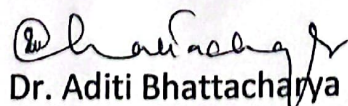 Dr. Aditi Bhattacharya